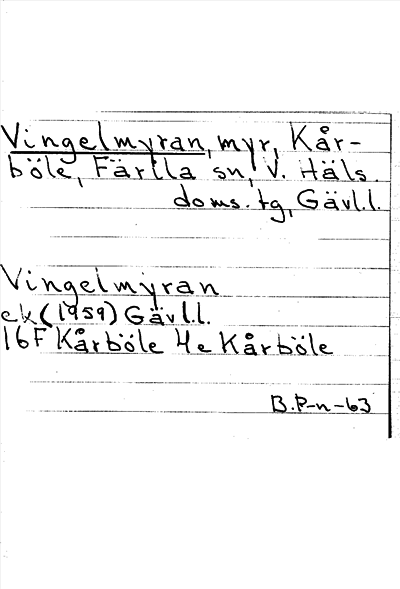 Vingelmyran, myr, Kår-
böle, Färila sn, V. Häls.
doms. tg, Gävl.l.
Vingelmyran
ek (1959) Gävl.l.
16F Kårböle 4e Kårböle
B.P-n-63